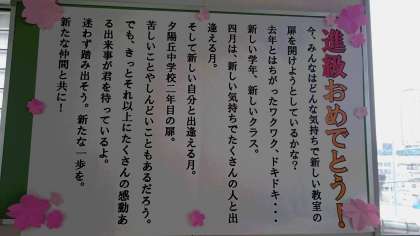 進級おめでとう！
今、みんなはどんな気持ちで新しい教室の
扉を開けようとしているかな？
去年とはちがったワクワク、ドキドキ・・・
新しい学年、新しいクラス。
四月は、新しい気持ちでたくさんの人と出
逢える月。
そして新しい自分と出逢える月。
夕陽丘中学校二年目の扉。
苦しいことやしんどいこともあるだろう。
でも、きっとそれ以上にたくさんの感動あ
る出来事が君を待っているよ。
迷わず踏み出そう。新たな一歩を。
新たな仲間と共に！